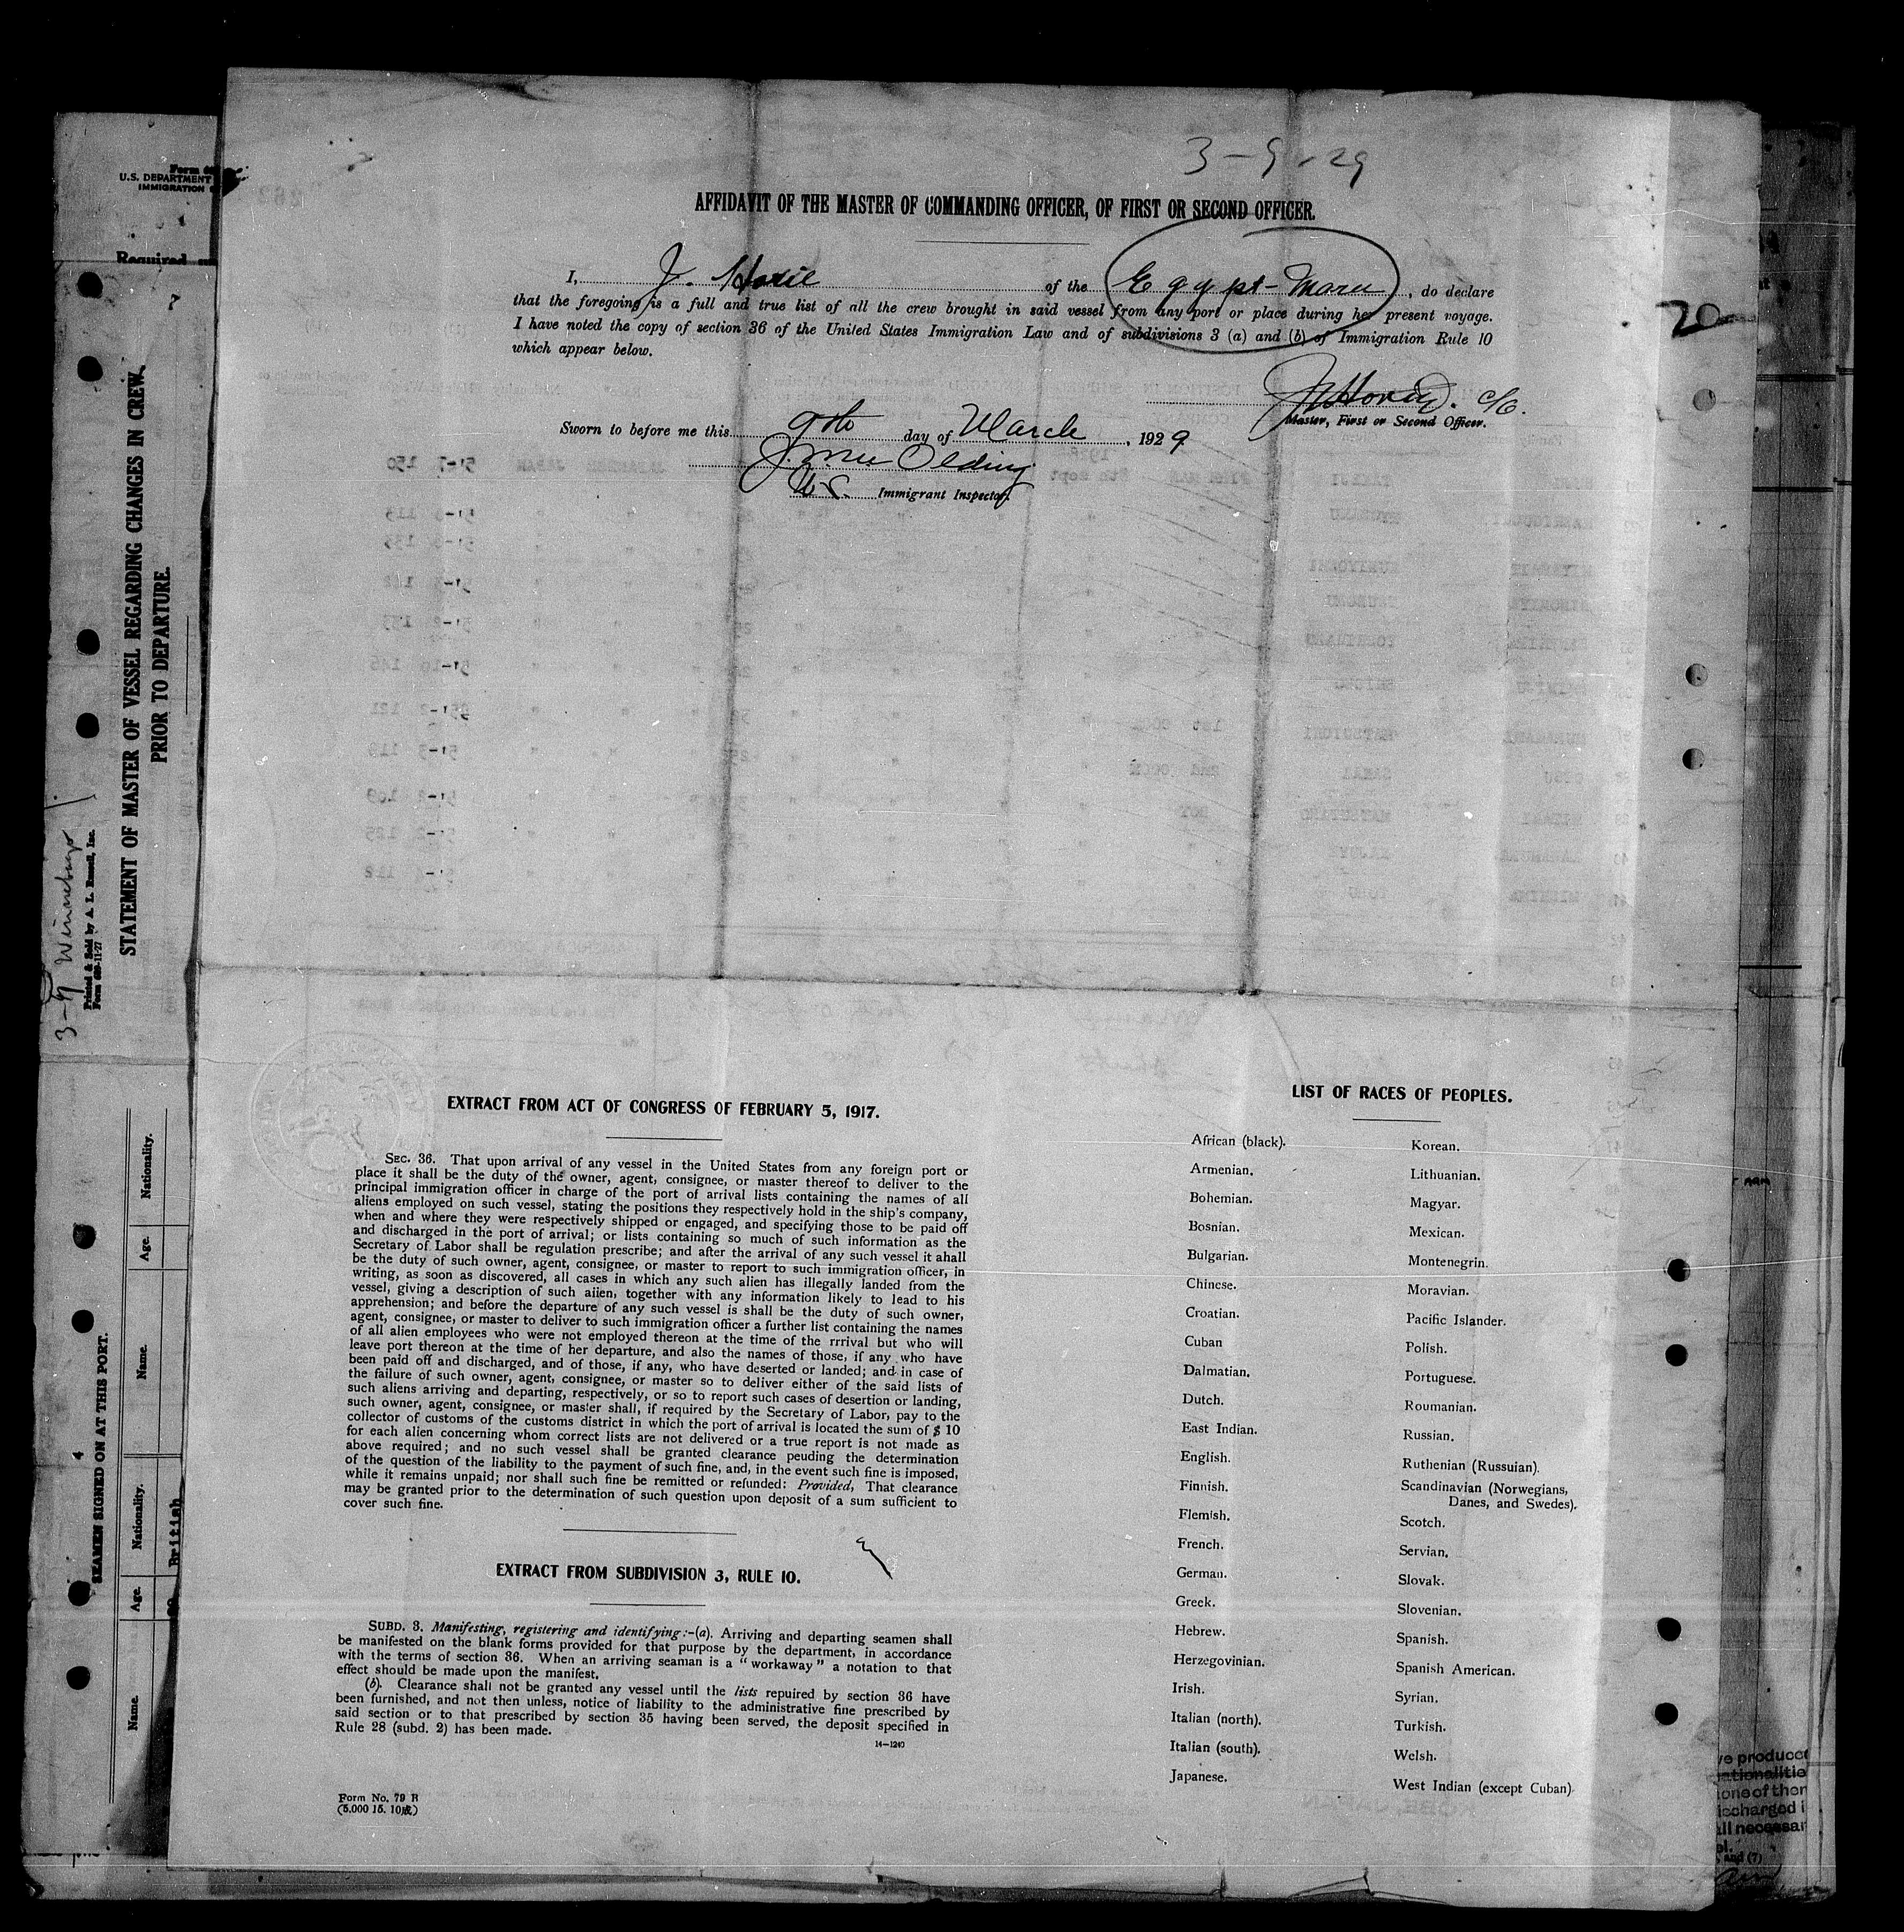 3-9-29
AFFIDAVIT OF THE MASTER OF COMMANDING OFFICER, OF FIRST OR SECOND OFFICER.
I, J. of the Egypt-Maru, do declare
that the foregoing is a full and true list of all the crew brought in said vessel from any port or place during her present voyage.
I have noted the copy of section 36 of the United States Immigration Law and of subdivisions 3 (a) and (b) of Immigration Rule 10
which appear below.
20
C/O.
Master, First or Second Officer.
Sworn to before me this 9th day of March, 1929
Olding
U.S. Immigrant Inspector.
EXTRACT FROM ACT OF CONGRESS OF FEBRUARY 5, 1917.
SEC. 36. That upon arrival of any vessel in the United States from any foreign port or
place it shall be the duty of the owner, agent, consignee, or master thereof to deliver to the
principal immigration officer in charge of the port of arrival lists containing the names of all
aliens employed on such vessel, stating the positions they respectively hold in the ship's company,
when and where they were respectively shipped or engaged, and specifying those to be paid off
and discharged in the port of arrival; or lists containing so much of such information as the
Secretary of Labor shall be regulation prescribe; and after the arrival of any such vessel it ahall
be the duty of such owner, agent, consignee, or master to report to such immigration officer, in
writing, as soon as discovered, all cases in which any such alien has illegally landed from the
vessel, giving a description of such aiien, together with any information likely to lead to his
apprehension; and before the departure of any such vessel is shall be the duty of such owner,
agent, consignee, or master to deliver to such immigration officer a further list containing the names
of all alien employees who were not employed thereon at the time of the rrrival but who will
leave port thereon at the time of her departure, and also the names of those, if any who have
been paid off and discharged, and of those, if any, who have deserted or landed; and in case of
the failure of such owner, agent, consignee, or master so to deliver either of the said lists of
such aliens arriving and departing, respectively, or so to report such cases of desertion or landing,
such owner, agent, consignee, or master shall, if required by the Secretary of Labor, pay to the
collector of customs of the customs district in which the port of arrival is located the sum of $ 10
for each alien concerning whom correct lists are not delivered or a true report is not made as
above required; and no such vessel shall be granted clearance peuding the determination
of the question of the liability to the payment of such fine, and, in the event such fine is imposed,
while it remains unpaid; nor shall such fine be remitted or refunded: Provided, That clearance
may be granted prior to the determination of such question upon deposit of a sum sufficient to
cover such fine.
EXTRACT FROM SUBDIVISION 3, RULE 10.
SUBD. 3. Manifesting, registering and identifying:-(a). Arriving and departing seamen shall
be manifested on the blank forms provided for that purpose by the department, in accordance
with the terms of section 36. When an arriving seaman is a "workaway" a notation to that
effect should be made upon the manifest.
(b). Clearance shall not be granted any vessel until the lists repuired by section 36 have
been furnished, and not then unless, notice of liability to the administrative fine prescribed by
said section or to that prescribed by section 35 having been served, the deposit specified in
Rule 28 (subd. 2) has been made.
14-1240
Form No. 79 B
(5.000 15. 10.)
LIST OF RACES OF PEOPLES.
African (black).
Armenian.
Bohemian.
Bosnian.
Bulgarian.
Chinese.
Croatian.
Cuban
Dalmatian.
Dutch.
East Indian.
English.
Finnish.
Flemish.
French.
German.
Greek.
Hebrew.
Herzegovinian.
Irish.
Italian (north).
Italian (south).
Japanese.
Korean.
Lithuanian.
Magyar.
Mexican.
Montenegrin.
Moravian.
Pacific Islander.
Polish.
Portuguese.
Roumanian.
Russian.
Ruthenian (Russuian).
Scandinavian (Norwegians,
Danes, and Swedes).
Scotch.
Servian.
Slovak.
Slovenian.
Spanish.
Spanish American.
Syrian.
Turkish.
Welsh.
West Indian (except Cuban).
U.S. DEPARTMENT
IMMIGRATION
Required
STATEMENT OF MASTER OF VESSEL REGARDING CHANGES IN CREW,
PRIOR TO DEPARTURE.
Printed & Sold by A. L. Russell, Inc.
Form 689-11-27
4
SEAMEN SIGNED ON AT THIS PORT.
Name. Age. Nationality. Name. Age. Nationality.
British